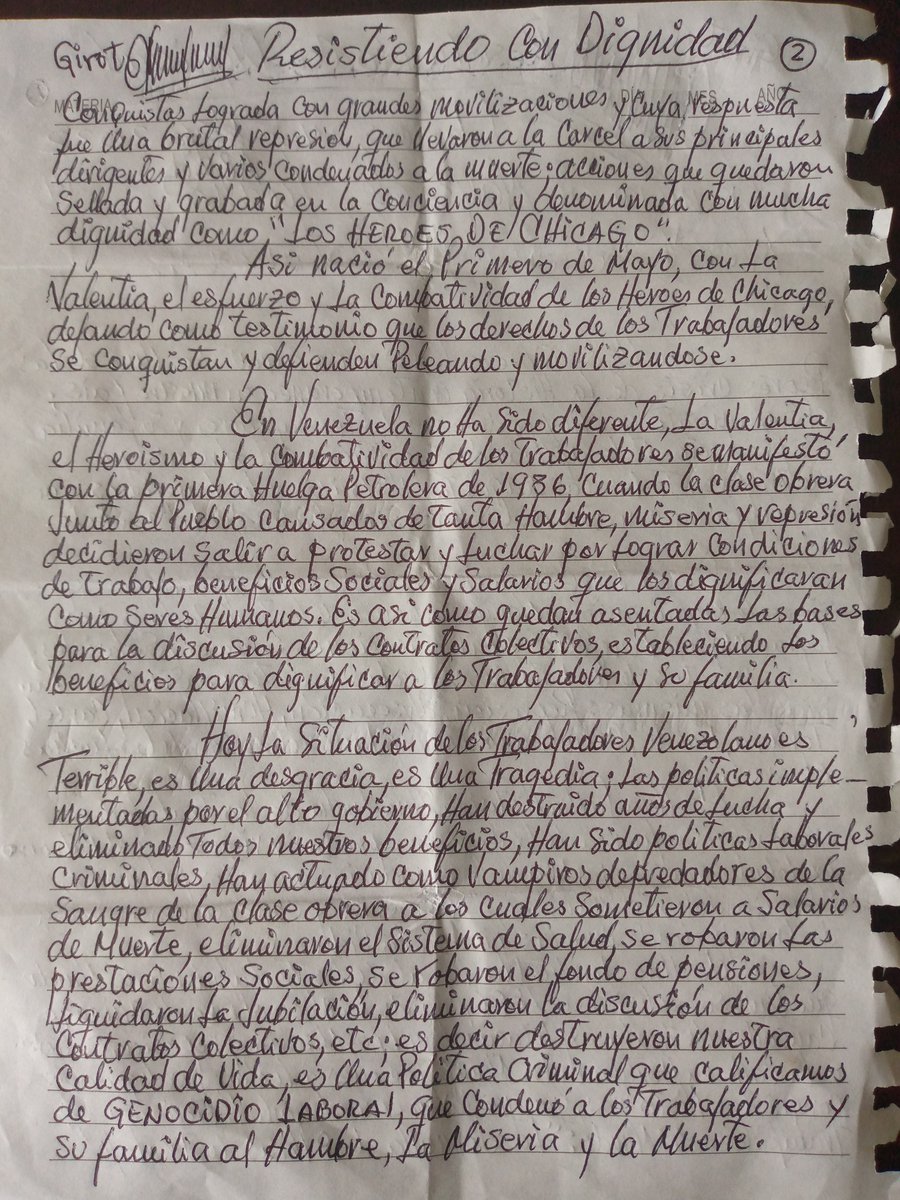 Girot Resistiendo Con Dignidad 2
MATERIA DIA MES AÑO
Conquistas lograda con grandes movilizaciones y cuya respuesta
fue una brutal represion, que llevaron a la Carcel a sus principales
dirigentes y varios condenados a la muerte; acciones que quedaron
Sellada y grabada en la Conciencia y denominada con mucha
dignidad como, "LOS HEROES DE CHICAGO".
Asi nació el Primero de Mayo, con La
Valentia, el esfuerzo y La Combatividad de los Heroes de Chicago,
dejando como testimonio que los derechos de los Trabajadores
Se conquistan y defienden Peleando y movilizandose.
En Venezuela no Ha Sido diferente, La Valentia,
el Heroismo y la Combatividad de los Trabajadores se manifestó
con la primera Huelga Petrolera de 1936, Cuando la clase Obrera
Junto al Pueblo Cansados de Tanta Hambre, miseria y represión
decidieron Salir a protestar y luchar por lograr Condiciones
de Trabajo, beneficios Sociales y Salarios que los dignificaran
Como Seres Humanos. Es asi como quedan asentadas Las bases
para la discusión de los Contratos Colectivos, estableciendo Los
beneficios para dignificar a los Trabajadores y Su familia.
Hoy La Situación de los Trabajadores Venezolano es
Terrible, es Una desgracia, es Una Tragedia; Las politicas imple-
mentadas por el alto gobierno, Han destruido años de Lucha y
eliminado Todos nuestros beneficios, Han Sido politicas Laborales
Criminales, Han actuado como Vampiros depredadores de la
Sangre de la Clase obrera a los cuales Sometieron a Salarios
de Muerte, eliminaron el Sistema de Salud, se robaron Las
prestaciones Sociales, se robaron el fondo de pensiones,
Liquidaron La Jubilación, eliminaron la discusión de los
Contratos Colectivos, etc; es decir destruyeron nuestra
Calidad de Vida, es Una Politica Criminal que calificamos
de GENOCIDIO LABORAL, que Condenó a los Trabajadores y
Su familia al Hambre, La Miseria y la Muerte.